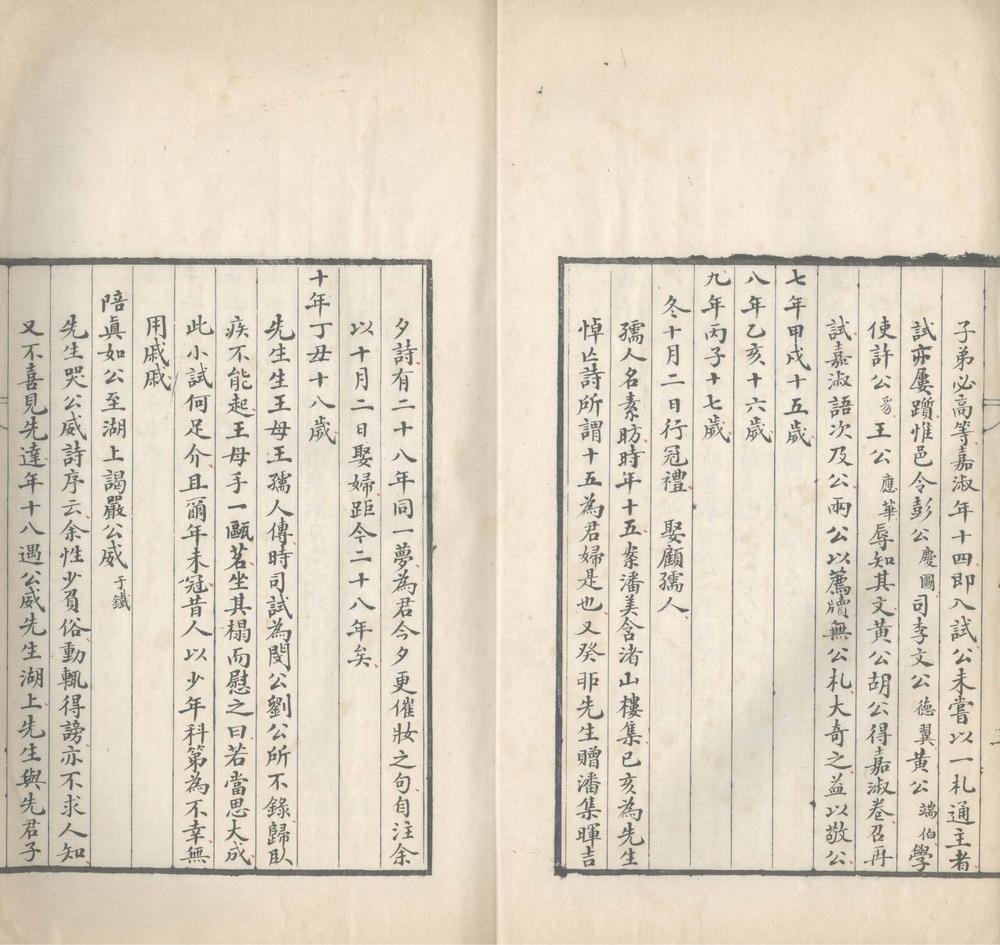 子弟必高等嘉淑年十四即入試公未嘗以一札通主者
試亦屢躓惟邑令彭公慶圖司李文公德翼黄公端伯學
使許公豸王公應華辱知其文黄公胡公得嘉淑卷召再
試嘉淑語次及公兩公以薦牘無公札大奇之益以敬公
七年甲戌十五歲
八年乙亥十六歲
九年丙子十七歲
冬十月二日行冠禮 娶顧孺人
孺人名素昉時年十五案潘美含渚山樓集已亥為先生
悼亡詩所謂十五為君婦是也又癸丣先生贈潘集暉吉
夕詩有二十八年同一夢為君今夕更催妝之句自注余
以十月二日娶婦距今二十八年矣
十年丁丑十八歲
先生生王母王孺人傳時司試為閔公劉公所不錄歸臥
疾不能起王母手一甌茗坐其榻而慰之曰若當思大成
此小試何足介且爾年未冠昔人以少年科第為不幸無
用戚戚
陪真如公至湖上謁嚴公威于鐵
先生哭公威詩序云余性少負俗動輒得謗亦不求人知
又不喜見先達年十八遇公威先生湖上先生與先君子